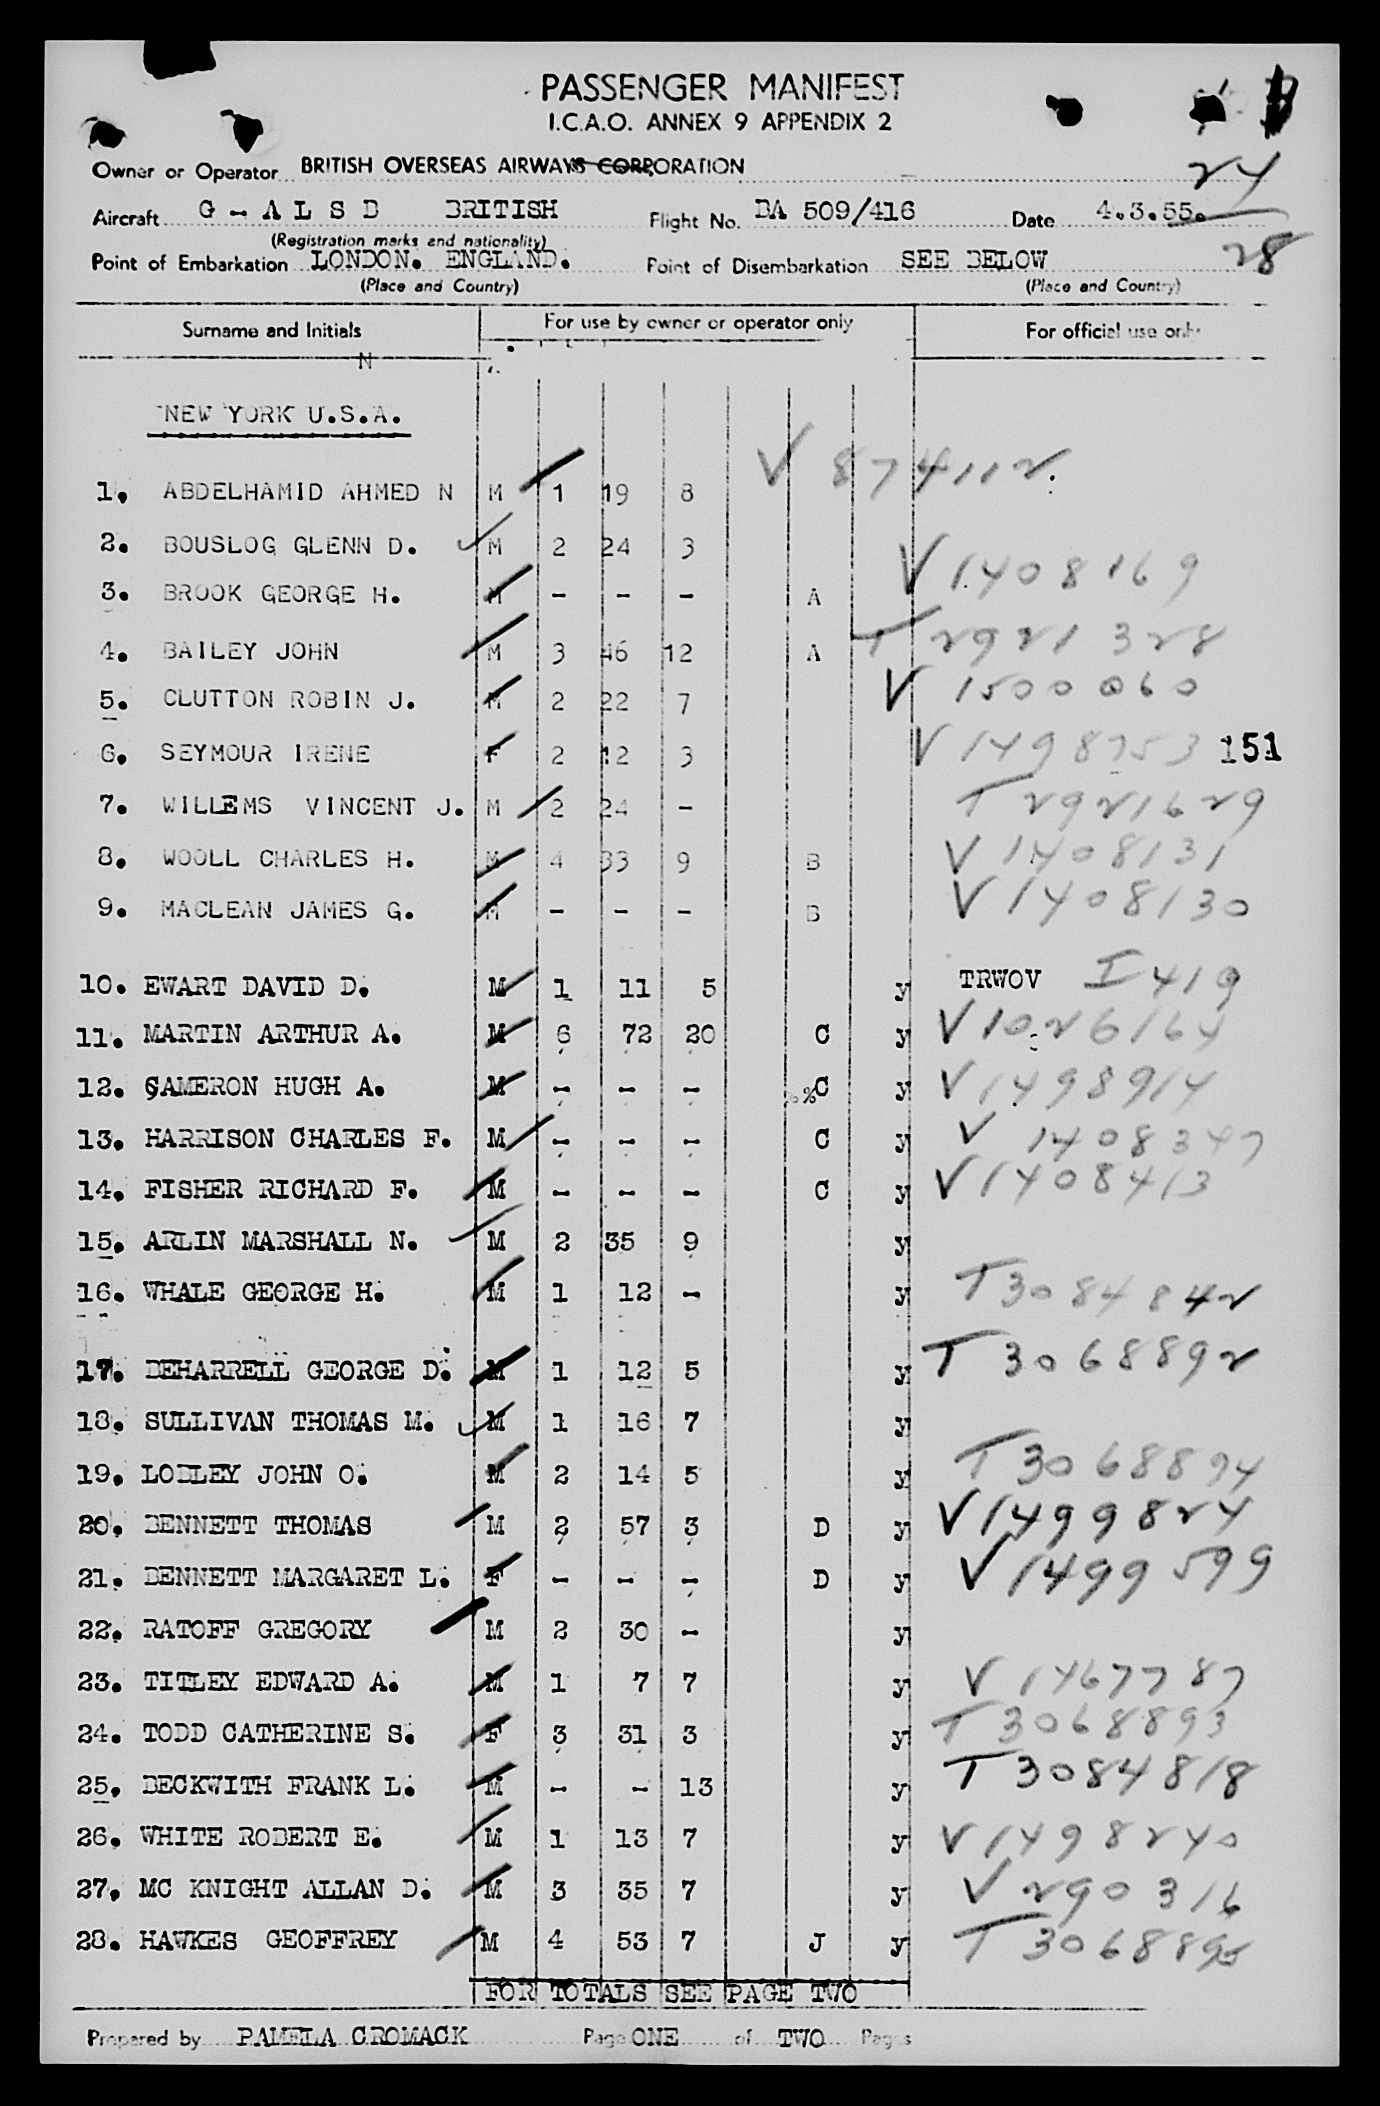 PASSENGER MANIFEST
I.C.A.O. ANNEX 9 APPENDIX 2
Owner or Operator BRITISH OVERSEAS AIRWAYS CORPORATION
24
Aircraft G - A L S D BRITISH Flight No. BA 509/416 Date 4.3.55.
(Registration marks and nationality)
28
Point of Embarkation LONDON. ENGLAND. Point of Disembarkation SEE BELOW
(Place and Country) (Place and Country)
Surname and Initials For use by owner or operator only For official use only
N
NEW YORK U.S.A.
1. ABDELHAMID AHMED N M 1 19 8 V 874112
2. BOUSLOG GLENN D. M 2 24 3
3. BROOK GEORGE H. M - - - A V 1408169
4. BAILEY JOHN M 3 46 12 A T 2921328
5. CLUTTON ROBIN J. M 2 22 7 V 1500060
6. SEYMOUR IRENE F 2 12 3 V 1498753 151
7. WILLEMS VINCENT J. M 2 24 - T 2921629
8. WOOLL CHARLES H. M 4 33 9 B V 1408131
9. MACLEAN JAMES G. M - - - B V 1408130
10. EWART DAVID D. M 1 11 5 y TRWOV I 419
11. MARTIN ARTHUR A. M 6 72 20 C y V 1026164
12. CAMERON HUGH A. M - - - C y V 1498914
13. HARRISON CHARLES F. M - - - C y V 1408347
14. FISHER RICHARD F. M - - - C y V 1408413
15. ARLIN MARSHALL N. M 2 35 9 y
16. WHALE GEORGE H. M 1 12 - y T 3084842
17. DEHARRELL GEORGE D. M 1 12 5 y T 3068892
18. SULLIVAN THOMAS M. M 1 16 7 y
19. LODLEY JOHN O. M 2 14 5 y T 3068894
20. BENNETT THOMAS M 2 57 3 D y V 1499824
21. BENNETT MARGARET L. F - - - D y V 1499599
22. RATOFF GREGORY M 2 30 - y
23. TITLEY EDWARD A. M 1 7 7 y V 1467787
24. TODD CATHERINE S. F 3 31 3 y T 3068893
25. BECKWITH FRANK L. M - - 13 y T 3084818
26. WHITE ROBERT E. M 1 13 7 y V 1498240
27. MC KNIGHT ALLAN D. M 3 35 7 y V 290316
28. HAWKES GEOFFREY M 4 53 7 J y T 3068895
FOR TOTALS SEE PAGE TWO
Prepared by PAMELA CROMACK Page ONE of TWO Pages